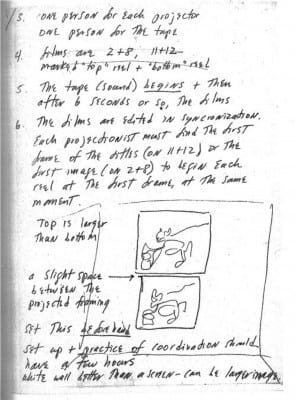 3. ONE PERSON for EACH PROJECTOR
ONE PERSON for THE TAPE
4. films ARE 2+8, 11+12
marked "top" reel + "bottom" reel
5. The tape (sound) begins + Then
after 6 seconds or so, The films
6. The films are edited in syncronization.
Each projectionist must find the first
frame of the titles (on 11+12) or the
first image (on 2+8) to begin Each
reel at the first frame, at the same
moment.
Top is larger
Than bottom
a slight space
between the
projected framing
set This beforehand
set up + practice of coordination should
have a few hours
white wall better than a screen - can be larger image.